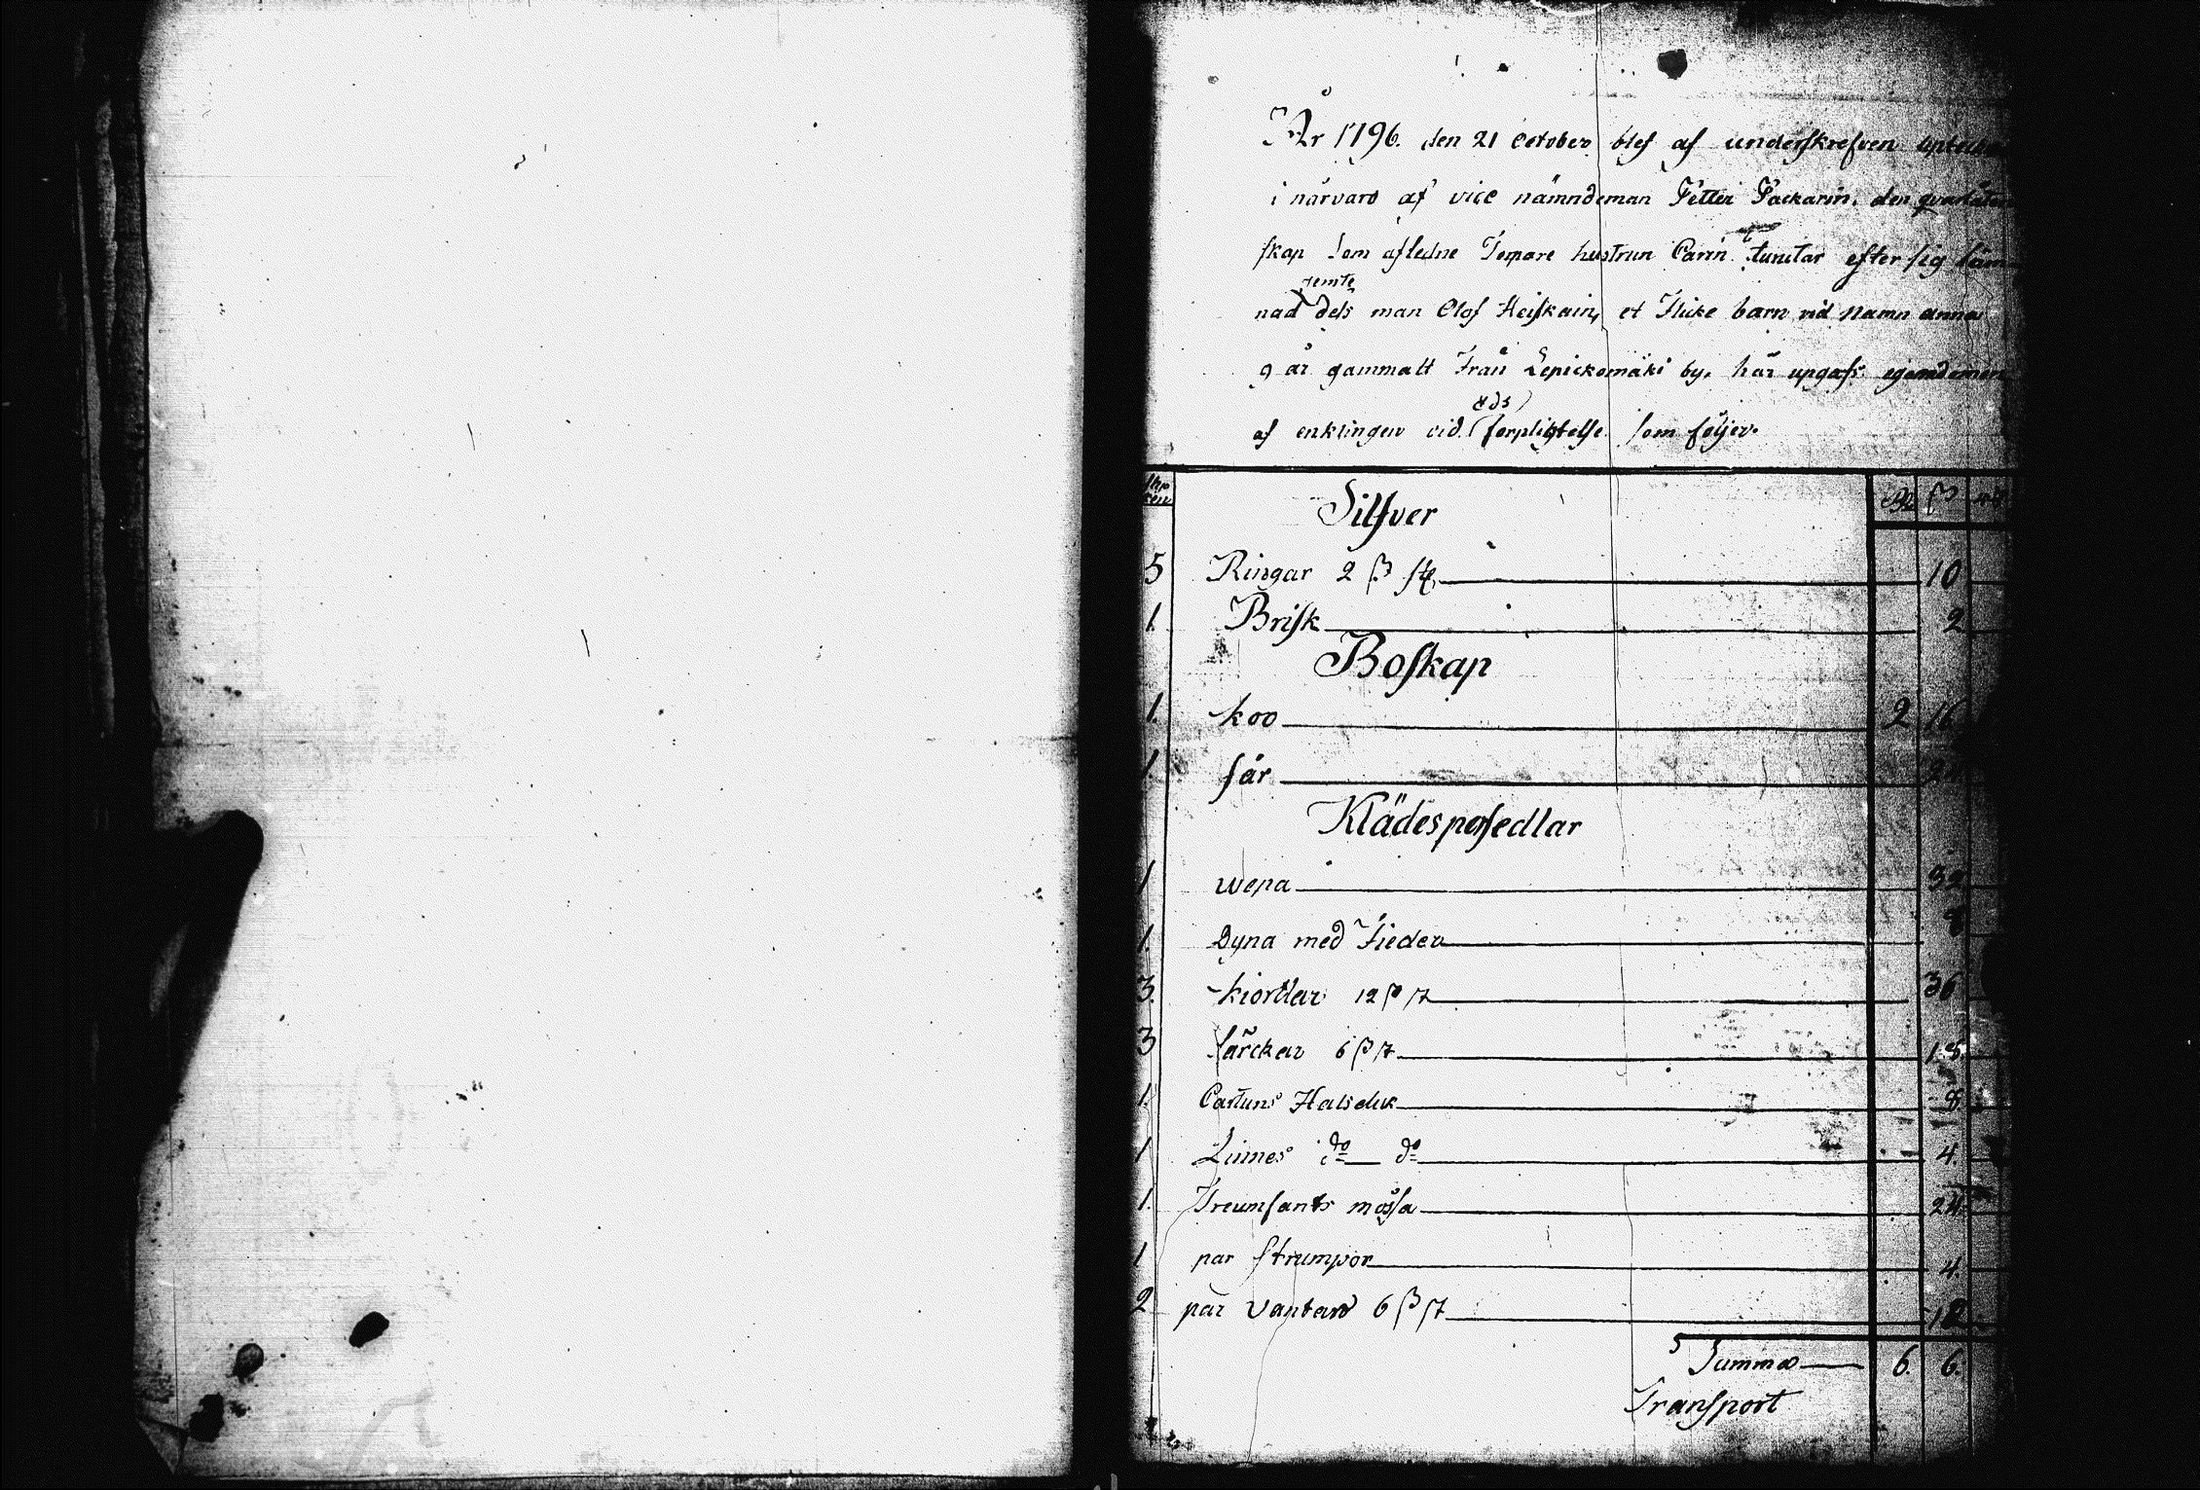 År 1796. den 21 October blef af underskrefven
i närvaro af vice nämndeman Petter Packarin. den
skap som afledne Inspare hustrun Carin turutar efter sig läm
nad jemte dels man Olof Heiskain, et Flicke barn vid Namn anna
9 år gammalt Från Lepickomäki by, har upgafs egendomen
af enklingen vid eds forpligtelse som följer.
Silfver
5 Ringar 2 β st. 10
1. Brisk 2
Boskap
1. koo 2 16
1. får
Klädespersedlar
1 wepa 32
1. Dyna med Fieder 8
3. kiortlar 12 β st 36
3 särckar 6 β st 18.
1. Cartuns Halsduk 8.
1 Linnes do do 4.
1. Treumfants mössa 24.
1 par strumpor 4.
2 par vantar 6 β st 12
Summa 6. 6.
Transport